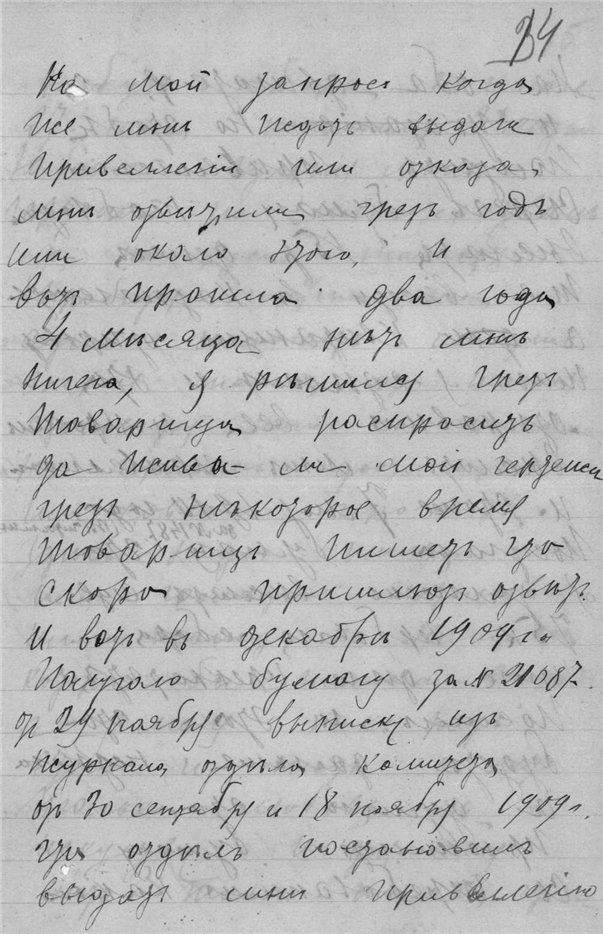 34
На мой запрос когда
же мнѣ ждать выдачи
Привеллегіи или отказа,
мнѣ отвѣтили чрезъ годъ
или около этого, и
вотъ прошло два года
4 мѣсяца нѣтъ мнѣ
ничего, я рѣшился чрезъ
товарища распросить
да живы ли мои чертежи
чрезъ нѣкоторое время
товарищъ пишетъ что
скоро пришлютъ отвѣтъ.
И вотъ въ декабрѣ 1909 г.
Получаю бумагу за № 21087.
от 29 ноября выписку изъ
журнала отдѣла комитета
от 30 сентября и 18 ноября 1909 г.
что отдѣлъ постановилъ
выдать мнѣ Привелегію